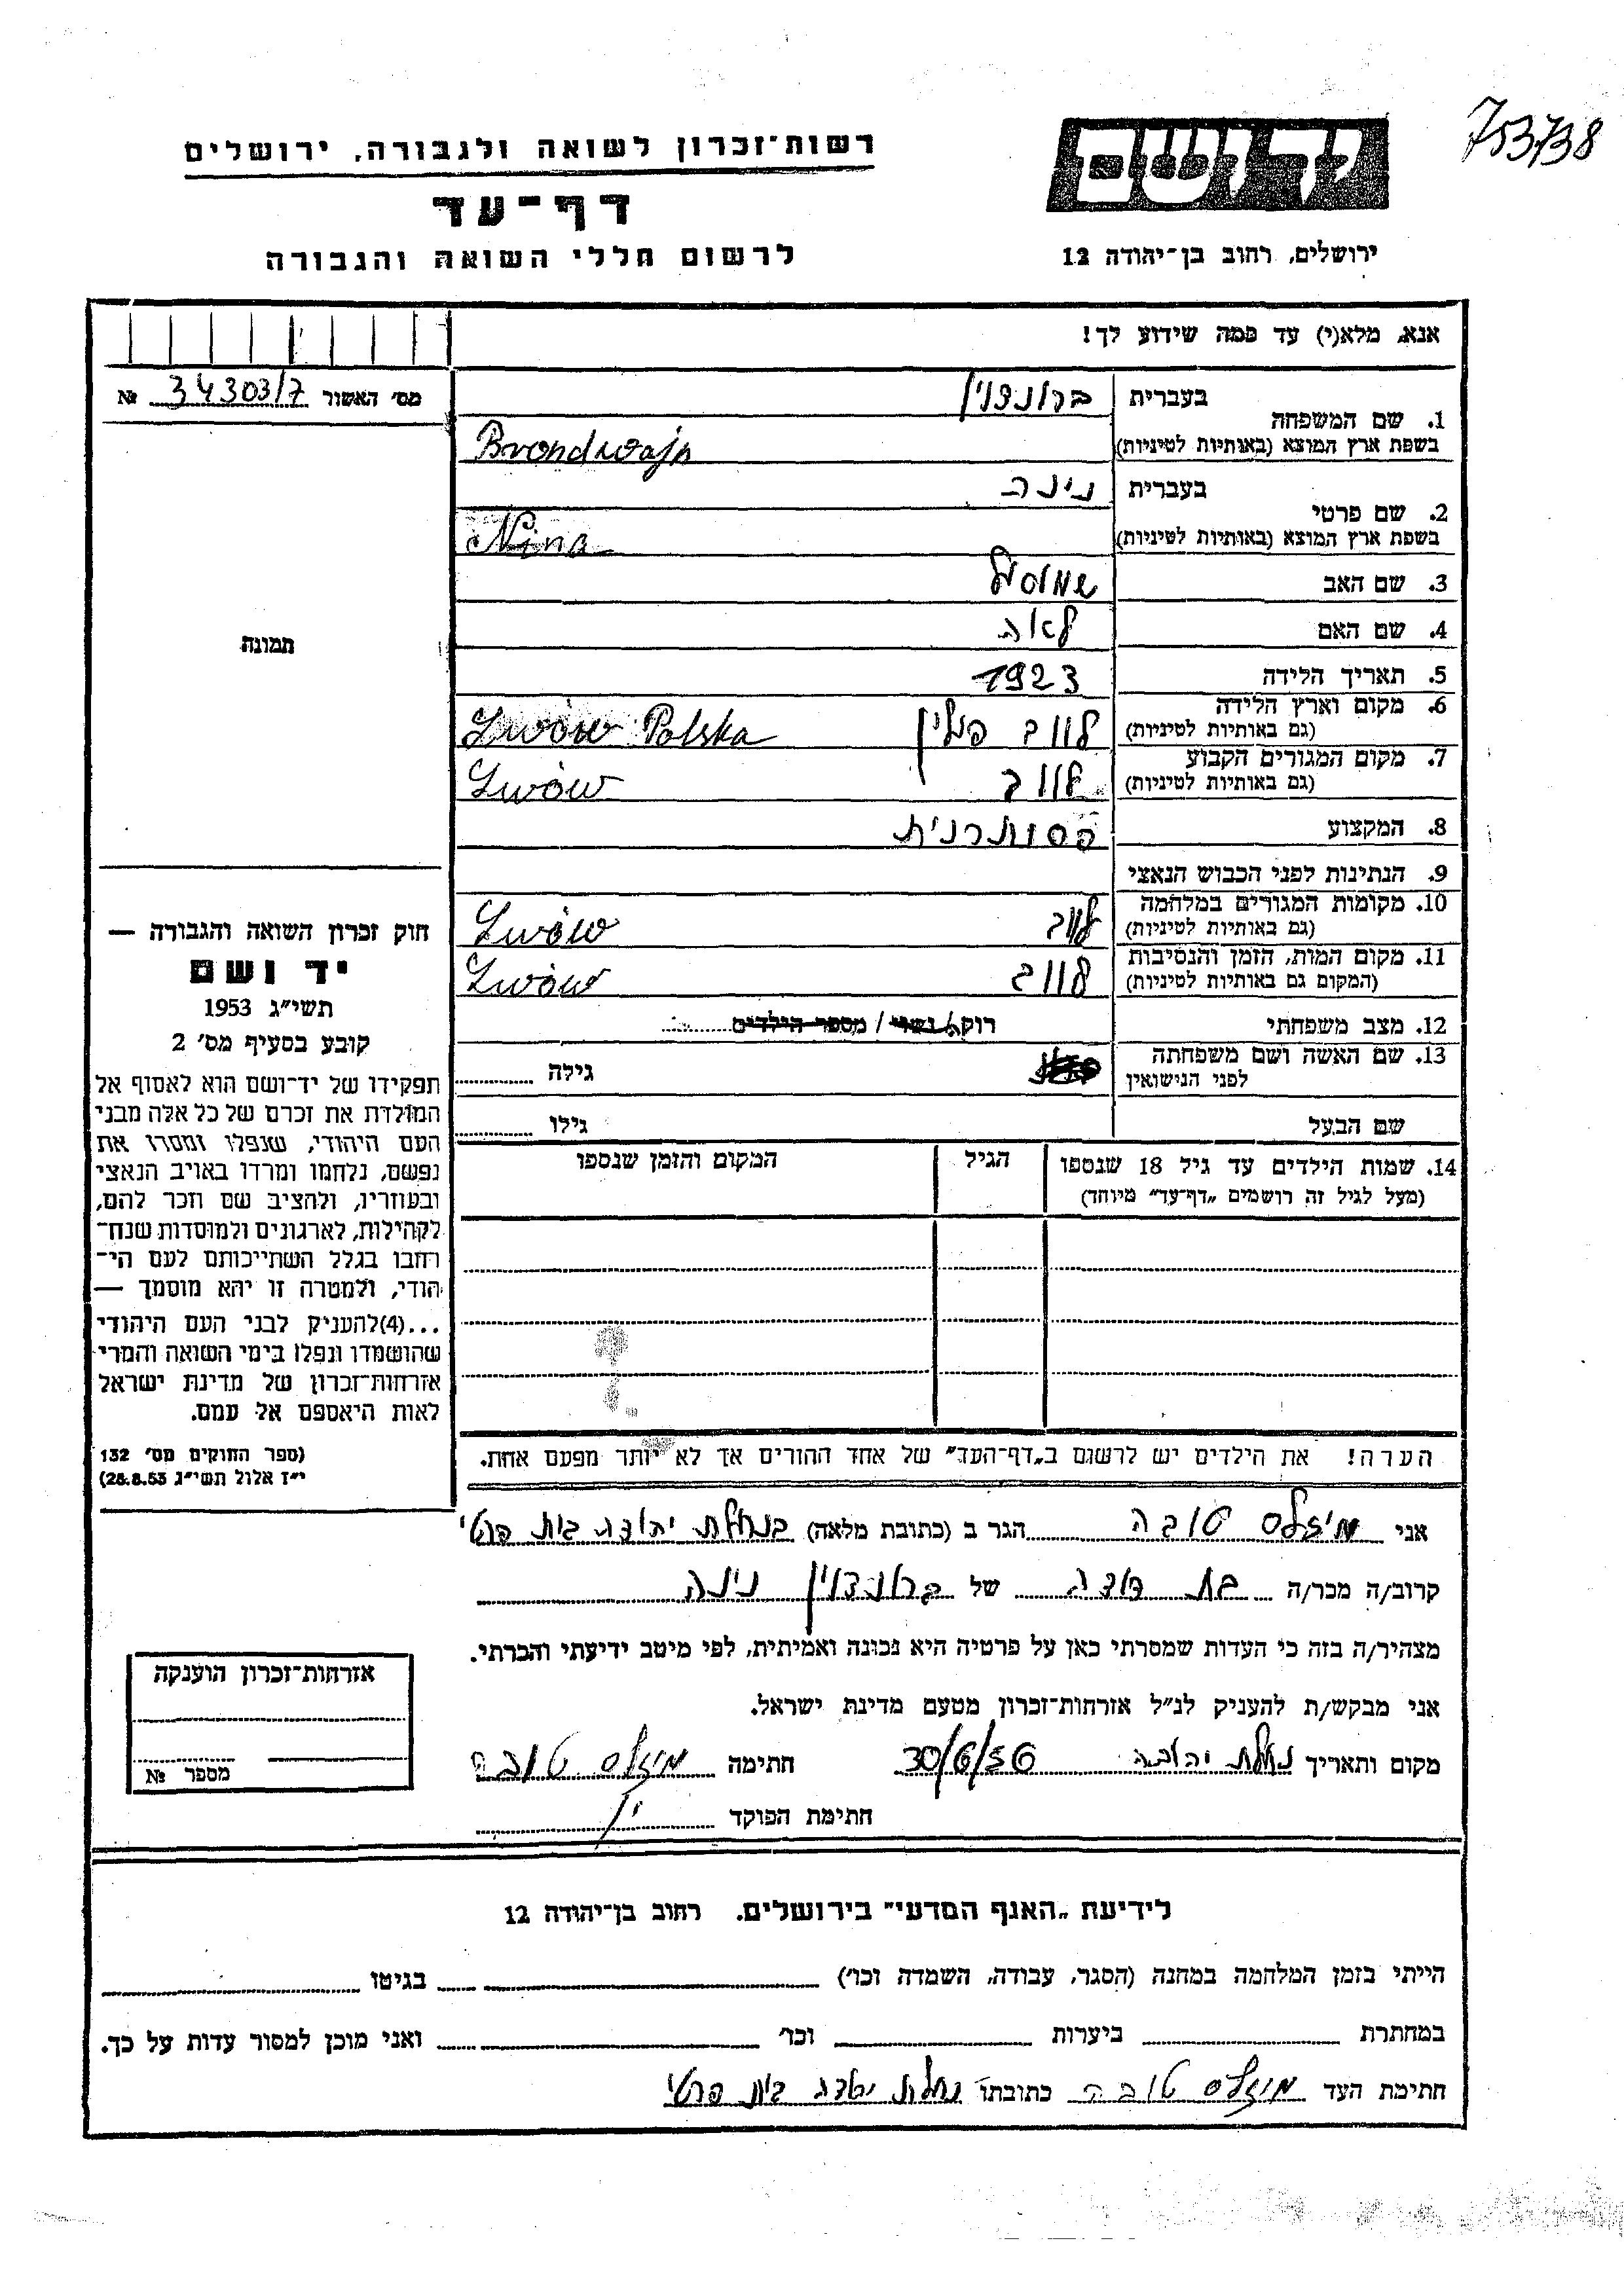 753738
רשות־זכרון לשואה ולגבורה, ירושלים
יד ושם
דף־עד
לרשום חללי השואה והגבורה
ירושלים, רחוב בן־יהודה 12
אנא, מלא(י) עד כמה שידוע לך!
מס׳ האשור 34303/7 №
1. שם המשפחה
בעברית ברונדוין
בשפת ארץ המוצא (באותיות לטיניות) Brondwajn
2. שם פרטי
בעברית נינה
בשפת ארץ המוצא (באותיות לטיניות) Nina
3. שם האב שמואל
4. שם האם לאה
5. תאריך הלידה 1923
6. מקום וארץ הלידה (גם באותיות לטיניות) לווב פולין Lwów Polska
7. מקום המגורים הקבוע (גם באותיות לטיניות) לווב Lwów
8. המקצוע
9. הנתינות לפני הכבוש הנאצי
10. מקומות המגורים במלחמה (גם באותיות לטיניות) לווב Lwów
11. מקום המות, הזמן והנסיבות (המקום גם באותיות לטיניות) לווב Lwów
12. מצב משפחתי רוק/ה / נשוי / מספר הילדים
13. שם האשה ושם משפחתה לפני הנישואין גילה
שם הבעל גילו
14. שמות הילדים עד גיל 18 שנספו (מעל לגיל זה רושמים „דף־עד״ מיוחד) הגיל המקום והזמן שנספו
הערה! את הילדים יש לרשום ב„דף־העד״ של אחד ההורים אך לא יותר מפעם אחת.
תמונה
חוק זכרון השואה והגבורה —
יד ושם
תשי״ג 1953
קובע בסעיף מס׳ 2
תפקידו של יד־ושם הוא לאסוף אל
המולדת את זכרם של כל אלה מבני
העם היהודי, שנפלו ומסרו את
נפשם, נלחמו ומרדו באויב הנאצי
ובעוזריו, ולהציב שם וזכר להם,
לקהילות, לארגונים ולמוסדות שנח־
רבו בגלל השתייכותם לעם הי־
הודי, ולמטרה זו יהא מוסמך —
...(4)להעניק לבני העם היהודי
שהושמדו ונפלו בימי השואה והמרי
אזרחות־זכרון של מדינת ישראל
לאות היאספם אל עמם.
(ספר החוקים מס׳ 132
י״ז אלול תשי״ג 28.8.53)
אני מיזלס טובה הגר ב (כתובת מלאה) בנחלת יהודה בית פרטי
קרוב/ה מכר/ה בת דודה של ברונדוין נינה
מצהיר/ה בזה כי העדות שמסרתי כאן על פרטיה היא נכונה ואמיתית, לפי מיטב ידיעתי והכרתי.
אני מבקש/ת להעניק לנ״ל אזרחות־זכרון מטעם מדינת ישראל.
מקום ותאריך נחלת יהודה 30/6/56 חתימה מיזלס טובה
חתימת הפוקד
אזרחות־זכרון הוענקה
מספר №
לידיעת „האגף המדעי״ בירושלים. רחוב בן־יהודה 12
הייתי בזמן המלחמה במחנה (הסגר, עבודה, השמדה וכו׳) בגיטו
במחתרת ביערות וכו׳ ואני מוכן למסור עדות על כך.
חתימת העד מיזלס טובה כתובתו נחלת יהודה בית פרטי